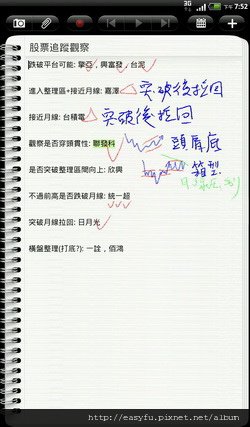 3G
下午 7:52
股票追蹤觀察
跌破平台可能: 擎亞, 興富發, 台泥
進入整理區+接近月線: 嘉澤 突破後拉回
接近月線: 台積電 突破後拉回
觀察是否穿頸貫性: 聯發科 頭肩底
是否突破整理區間向上: 欣興 箱型
不過前高是否跌破月線: 統一超
突破月線拉回: 日月光
橫盤整理(打底?): 一詮, 佰鴻
http://easyfu.pixnet.net/album